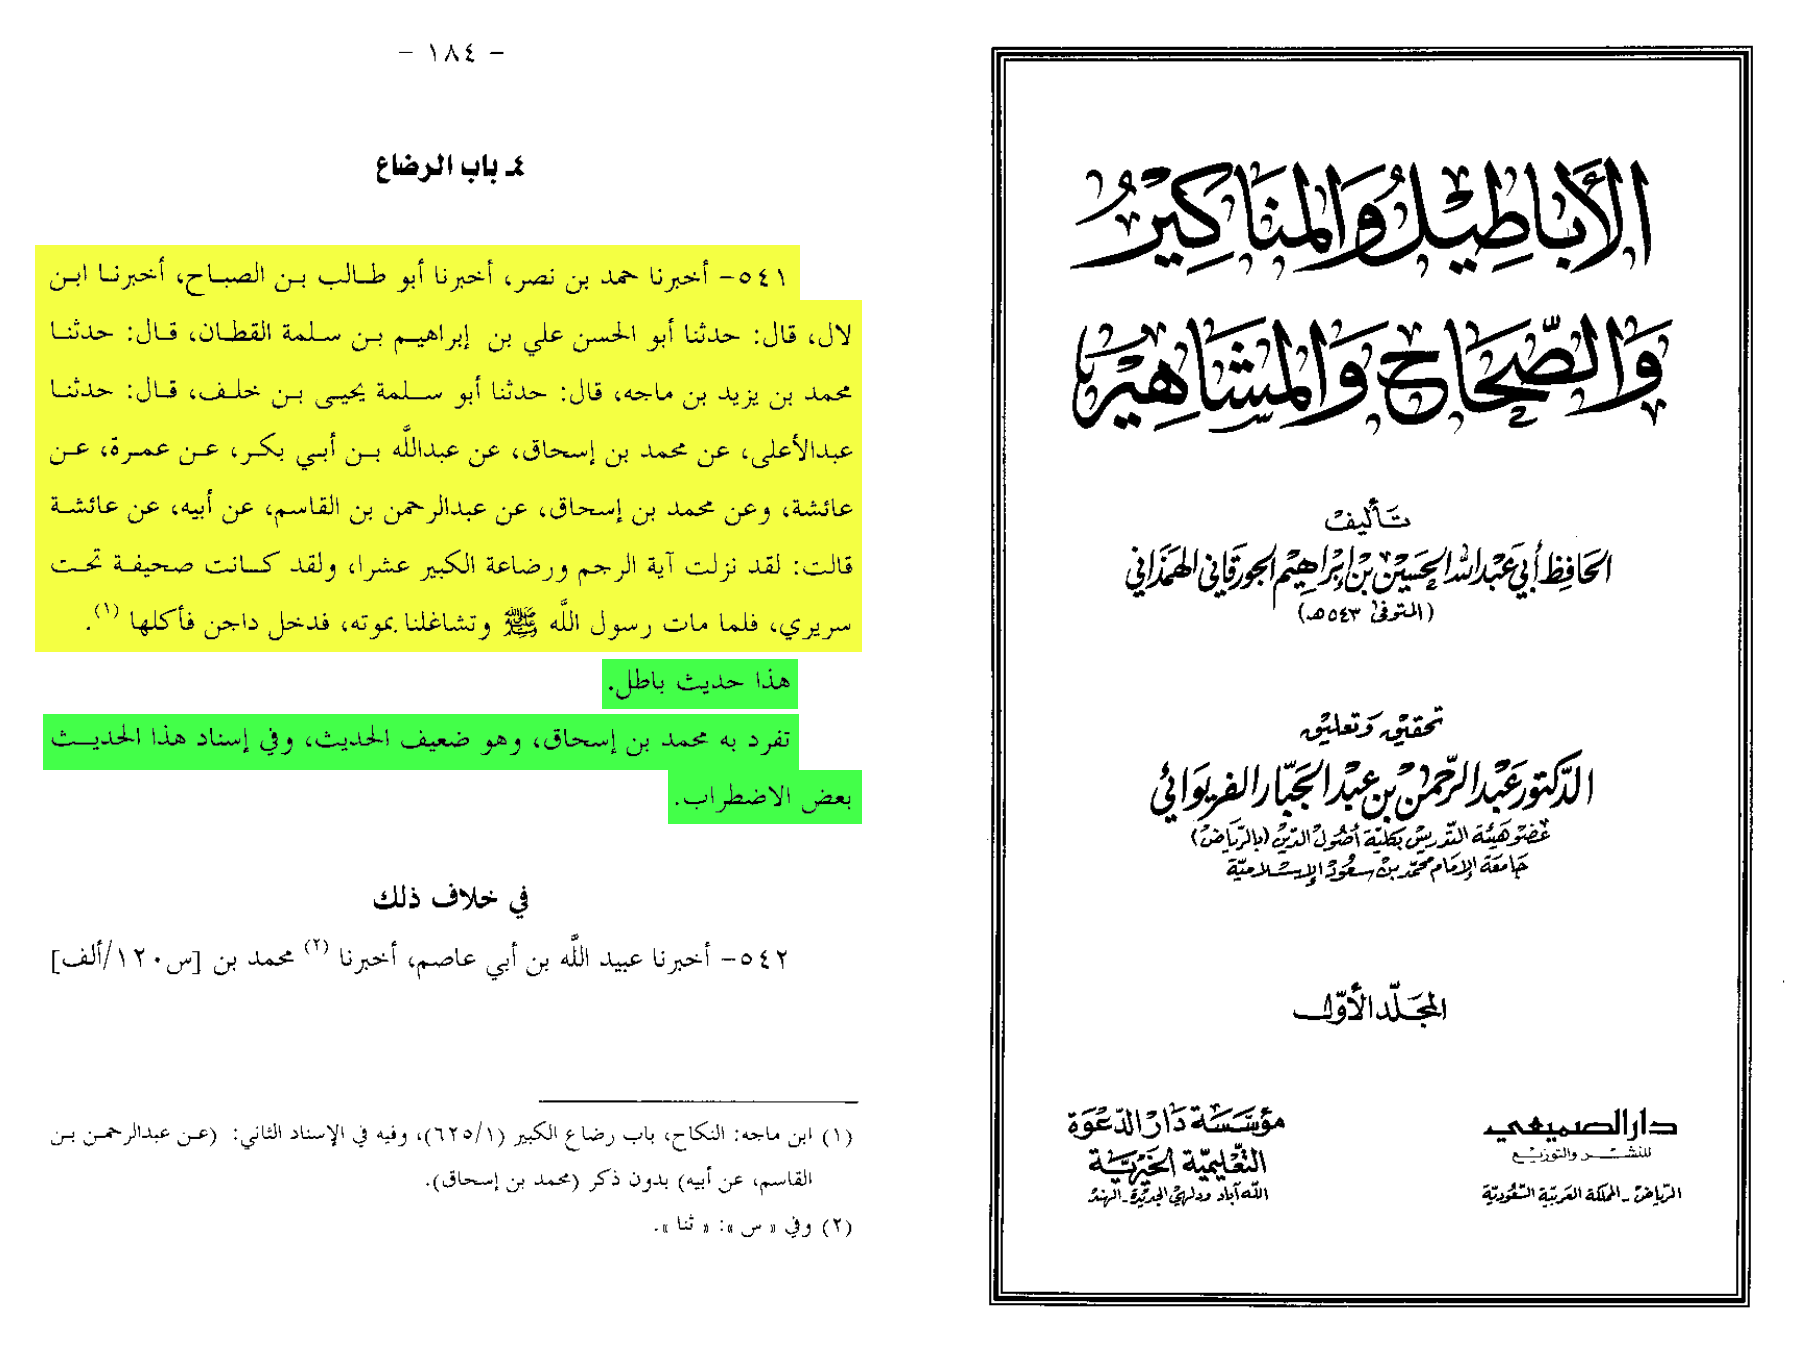 الأباطيل والمناكير
والصحاح والمشاهير
تأليف
الحافظ أبي عبد الله الحسين بن إبراهيم الجورقاني الهمذاني
(المتوفى ٥٤٣هـ)
تحقيق وتعليق
الدكتور عبد الرحمن بن عبد الجبار الفريوائي
عضو هيئة التدريس بكلية أصول الدين (بالرياض)
جامعة الإمام محمد بن سعود الإسلامية
المجلد الأول
دار الصميعي
للنشر والتوزيع
الرياض - المملكة العربية السعودية
مؤسسة دار الدعوة
التعليمية الخيرية
الله آباد ودلهي الجديدة - الهند
- ١٨٤ -
٤ـ باب الرضاع
٥٤١- أخبرنا حمد بن نصر، أخبرنا أبو طالب بن الصباح، أخبرنا ابن
لال، قال: حدثنا أبو الحسن علي بن إبراهيم بن سلمة القطان، قال: حدثنا
محمد بن يزيد بن ماجه، قال: حدثنا أبو سلمة يحيى بن خلف، قال: حدثنا
عبدالأعلى، عن محمد بن إسحاق، عن عبداللَّه بن أبي بكر، عن عمرة، عن
عائشة، وعن محمد بن إسحاق، عن عبدالرحمن بن القاسم، عن أبيه، عن عائشة
قالت: لقد نزلت آية الرجم ورضاعة الكبير عشرا، ولقد كانت صحيفة تحت
سريري، فلما مات رسول اللَّه ﷺ وتشاغلنا بموته، فدخل داجن فأكلها (١).
هذا حديث باطل.
تفرد به محمد بن إسحاق، وهو ضعيف الحديث، وفي إسناد هذا الحديث
بعض الاضطراب.
في خلاف ذلك
٥٤٢- أخبرنا عبيد اللَّه بن أبي عاصم، أخبرنا (٢) محمد بن [س١٢٠/ألف]
(١) ابن ماجه: النكاح، باب رضاع الكبير (٦٢٥/١)، وفيه في الإسناد الثاني: (عن عبدالرحمن بن
القاسم، عن أبيه) بدون ذكر (محمد بن إسحاق).
(٢) وفي « س »: « ثنا ».